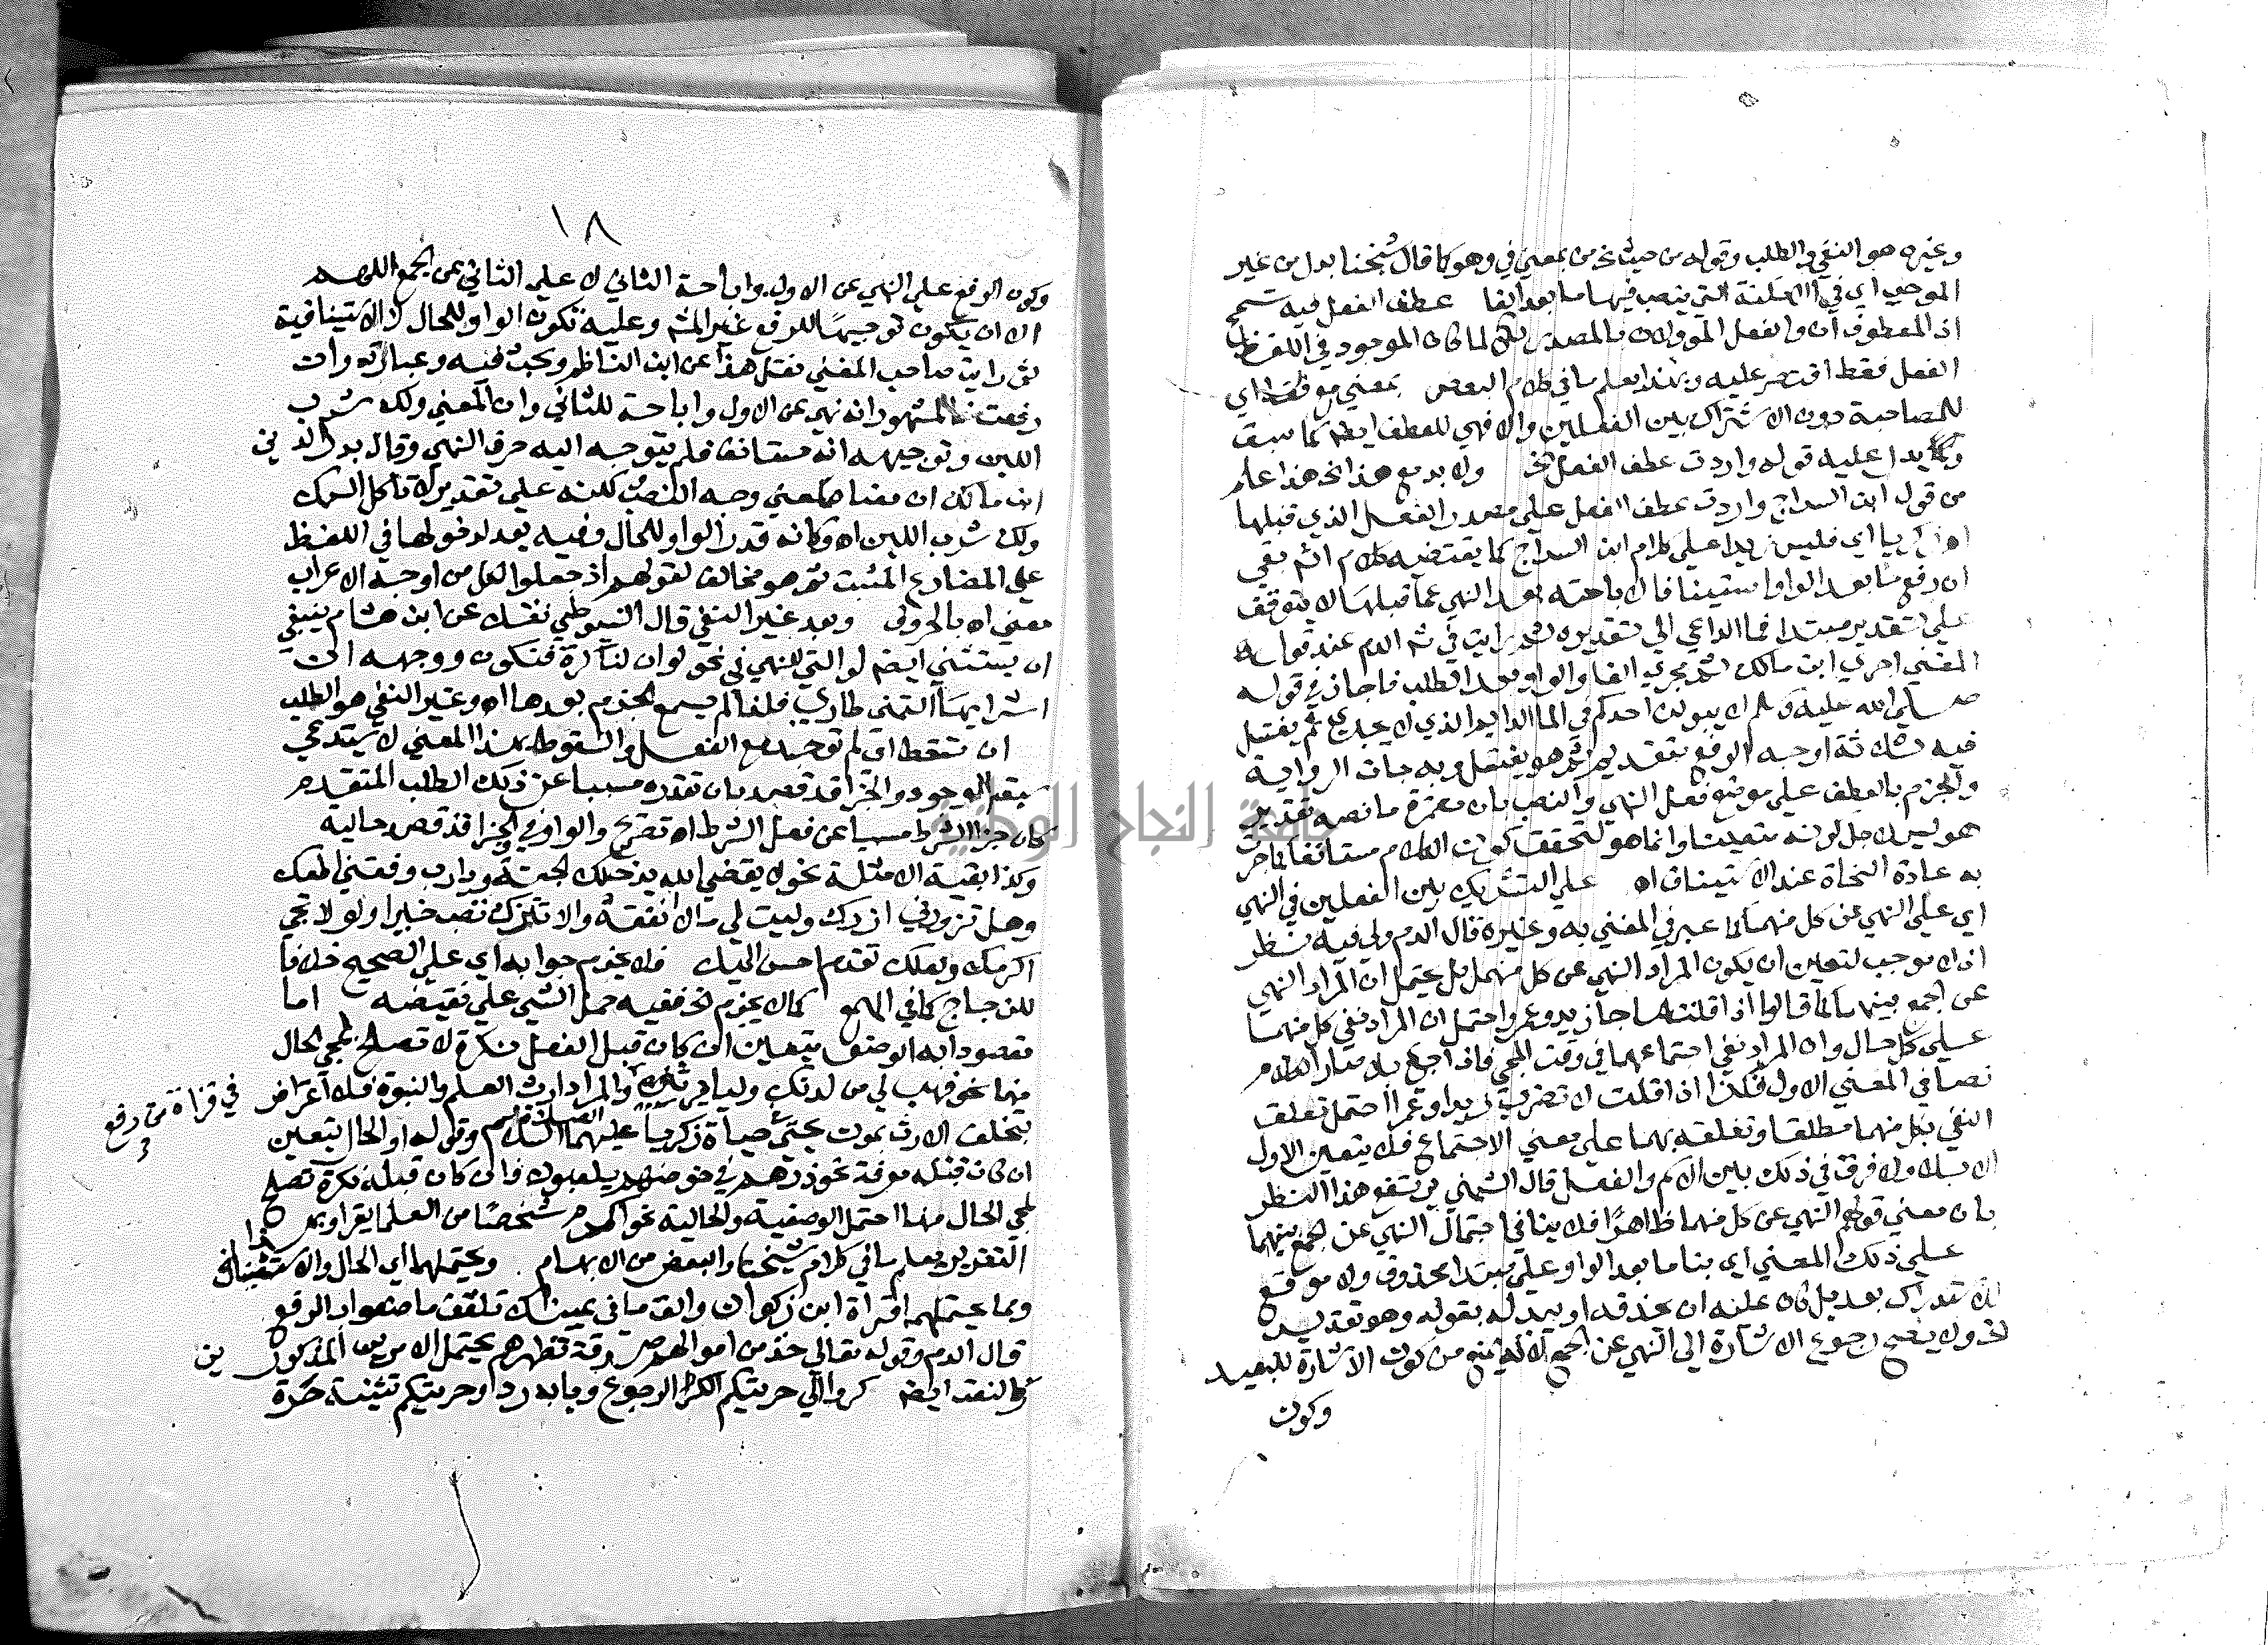 وغيره هو النفي والطلب وقوله من حيث نحو من بمعنى في وهو كما قال شيخنا بدل من غير
الموجب اي في الامكنة التي ينصب فيها ما بعد الفا عطف الفعل فيه تسمح
اذ المعطوف ان والفعل المؤولان بالمصدر لكن لما كان الموجود في اللفظ
الفعل فقط اقتصر عليه وبهذا يعلم ما في كلام البعض بمعنى مع فقط اي
للمصاحبة دون الاشتراك بين الفعلين والا فهي للعطف ايضا كما سبق
عليه قوله واردت عطف الفعل الخ ولا بد مع هذا الخ هذا علم
من قول ابن السراج واردت عطف الفعل على مصدر الفعل الذي قبلها
اي فليس زيدا على كلام ابن السراج كما يقتضيه كلام بقي
ان رفع ما بعد الواو استينافا لاباحته بعد النهي عما قبلها لا يتوقف
على تقدير مبتدا فما الداعي الى تقديره ثم رايت في الدم عند قول
المغني اجرى ابن مالك ثم مجرى الفا والواو بعد الطلب فاجاز في قوله
صلى الله عليه وسلم لا يبولن احدكم في الما الدايم الذي لا يجري ثم يغتسل
فيه ثلاثة اوجه الرفع بتقدير ثم هو يغتسل وبه جات الرواية
والجزم بالعطف على موضع فعل النهي والنصب بان مضمرة ما نصه تقدير
هو ليس لاجل كونه متعينا وانما هو لتحقق كون الكلام مستانفا كما جرت
به عادة النحاة عند الاستيناف اه على التشريك بين الفعلين في النهي
اي على النهي عن كل منهما كما عبر في المغني به وغيره قال الدم ولي فيه نظر
اذ لا موجب لتعين ان يكون المراد النهي عن كل منهما بل يحتمل ان المراد النهي
عن الجمع بينهما كما قالوا اذا قلت ما جا زيد وعمرو احتمل ان المراد نفي كل منهما
على كل حال وان المراد نفي اجتماعهما في وقت المجي فاذا جي بلا صار الكلام
نصا في المعنى الاول فكذا اذا قلت لا تضرب زيدا وعمرا احتمل تعلق
النفي بكل منهما مطلقا وتعلقه بهما على معنى الاجتماع فلا يتعين الاول
الا بلا ولا فرق في ذلك بين الاسم والفعل قال الشمني يرتفع هذا النظر
بان معنى قولهم النهي عن كل منهما ظاهرا فلا ينافي احتمال النهي عن الجمع بينهما
على ذلك المعنى اي بنا ما بعد الواو على مبتدا محذوف ولا موقع
للاستدراك بعد بل كان عليه ان يحذفه او يبدله بقوله وهو تقدير
الخ ولا يصح رجوع الاشارة الى النهي عن الجمع لانه يمنع من كون الاشارة للبعيد
وكون
١٨
وكون الرفع على النهي عن الاول واباحة الثاني لا على الثاني عن الجمع اللهم
الا ان يكون توجيها للرفع غير المش وعليه تكون الواو للحال لا الاستينافية
ثم رايت صاحب المغني نقل هذا عن ابن الناظم وبحث فيه وعبارته وان
رفعت فالمشهور انه نهي عن الاول واباحة للثاني وان المعنى ولك شرب
اللبن وتوجيهه انه مستانف فلم يتوجه اليه حرف النهي وقال بدر الدين
ابن مالك ان معناه كمعنى وجه النصب لكنه على تقدير لا تاكل السمك
ولك شرب اللبن اه وكانه قدر الواو للحال وفيه بعد لدخولها في اللفظ
على المضارع المثبت ثم هو مخالف لقولهم اذ جعلوا لكل من اوجه الاعراب
معنى اه بالحرف وبعد غير النفي قال السيوطي نقلا عن ابن هشام ينبغي
ان يستثنى ايضا لو التي للنهي في نحو لو ان لنا كرة فنكون ووجهه ان
اشرابها التمني طاري فلذا لم يسمع الجزم بعدها اه وغير النفي هو الطلب
ان تسقط الفا لم توجد مع الفعل والسقوط بهذا المعنى لا يستدعي
سبق الوجود والجزا قد قصد بان تقدره مسببا عن ذلك الطلب المتقدم
كان جزا الشرط مسببا عن فعل الشرط اه تصريح والواو في والجزا قد قصد حاليه
وكذا بقية الامثلة نحو لا يقضي الله يدخلك الجنة ويا رب وفقني اطعك
وهل تزورني ازرك وليت لي مالا انفقه والا تنزل تصب خيرا ولولا تجي
اكرمك ولعلك تقدم احسن اليك فلا يجزم جوابه اي على الصحيح خلافا
للزجاج كما في الهمع كما لا يجزم الخ ففيه حمل الشي على نقيضه اما
مقصودا به الوصف يتعين ان كان قبل الفعل نكرة لا تصلح لمجي الحال
منها نحو فهب لي من لدنك وليا يرثني والمراد ارث العلم والنبوة فلا اعتراض في قراءة من رفع
بتخلف الارث بموت يحيى حياة زكريا عليهما الصلاة والسلام وقوله او الحال يتعين
ان كان قبله معرفة نحو ذرهم في خوضهم يلعبون فان كان قبله نكرة تصلح
لمجي الحال منها احتمل الوصفية والحالية نحو اكرم شخصا من العلما يقرا وبهذا
التقرير يعلم ما في كلام شيخنا والبعض من الابهام ويحتملهما اي الحال والاستيناف
ومما يحتملهما قراة ابن ذكوان والق ما في يمينك تلقف ما صنعوا بالرفع
قال الدم وقوله تعالى خذ من اموالهم صدقة تطهرهم يحتمل الامرين المذكورين
والنعت ايضا كروا الى حرتيكم الكر الرجوع وبابه رد وحرتيكم تثنية حرة